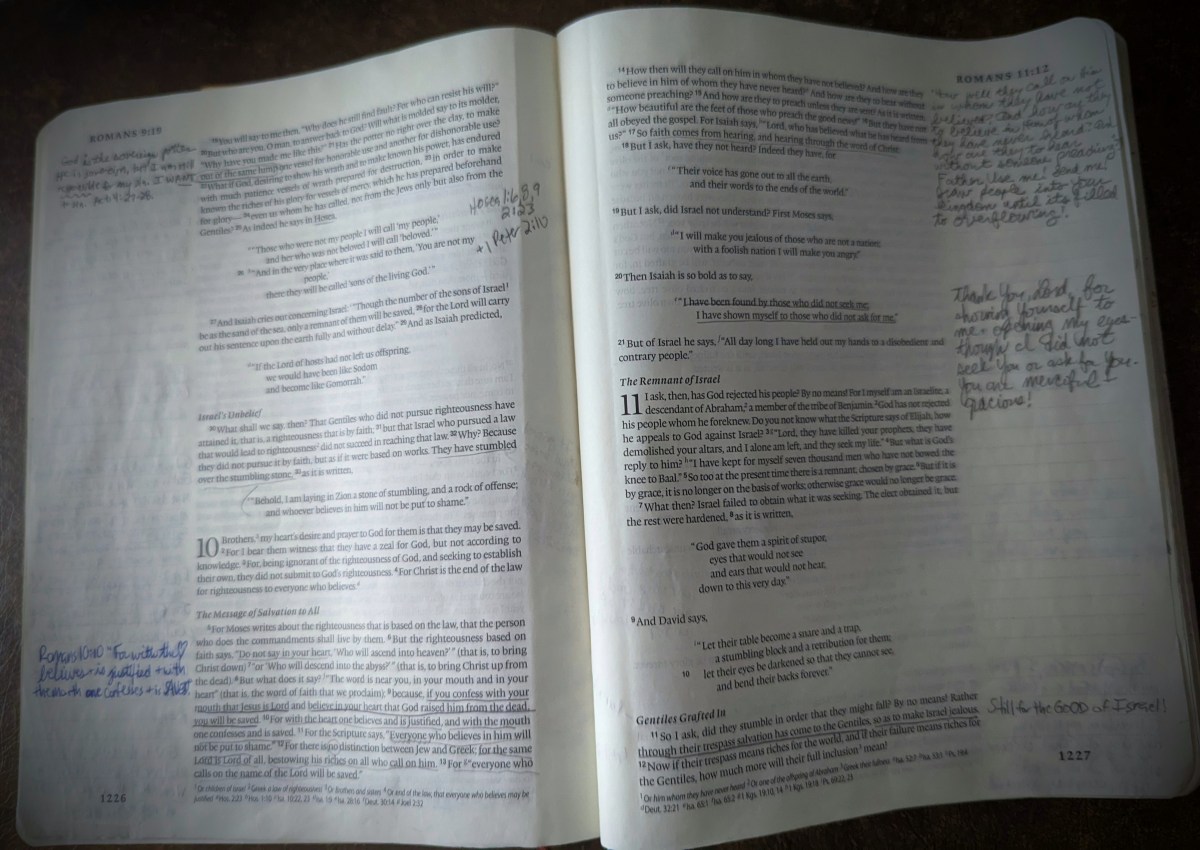 ROMANS 9:19
19 You will say to me then, "Why does he still find fault? For who can resist his will?"
20 But who are you, O man, to answer back to God? Will what is molded say to its molder,
"Why have you made me like this?" 21 Has the potter no right over the clay, to make
out of the same lump one vessel for honorable use and another for dishonorable use?
22 What if God, desiring to show his wrath and to make known his power, has endured
with much patience vessels of wrath prepared for destruction, 23 in order to make
known the riches of his glory for vessels of mercy, which he has prepared beforehand
for glory— 24 even us whom he has called, not from the Jews only but also from the
Gentiles? 25 As indeed he says in Hosea,
Hosea 1:6, 8, 9
2:23
+ 1 Peter 2:10
"Those who were not my people I will call 'my people,'
and her who was not beloved I will call 'beloved.'"
26 "And in the very place where it was said to them, 'You are not my
people,'
there they will be called 'sons of the living God.'"
27 And Isaiah cries out concerning Israel: "Though the number of the sons of Israel
be as the sand of the sea, only a remnant of them will be saved, 28 for the Lord will carry
out his sentence upon the earth fully and without delay." 29 And as Isaiah predicted,
"If the Lord of hosts had not left us offspring,
we would have been like Sodom
and become like Gomorrah."
Israel's Unbelief
30 What shall we say, then? That Gentiles who did not pursue righteousness have
attained it, that is, a righteousness that is by faith; 31 but that Israel who pursued a law
that would lead to righteousness did not succeed in reaching that law. 32 Why? Because
they did not pursue it by faith, but as if it were based on works. They have stumbled
over the stumbling stone, 33 as it is written,
"Behold, I am laying in Zion a stone of stumbling, and a rock of offense;
and whoever believes in him will not be put to shame."
10 Brothers, my heart's desire and prayer to God for them is that they may be saved.
2 For I bear them witness that they have a zeal for God, but not according to
knowledge. 3 For, being ignorant of the righteousness of God, and seeking to establish
their own, they did not submit to God's righteousness. 4 For Christ is the end of the law
for righteousness to everyone who believes.
The Message of Salvation to All
5 For Moses writes about the righteousness that is based on the law, that the person
who does the commandments shall live by them. 6 But the righteousness based on
faith says, "Do not say in your heart, 'Who will ascend into heaven?'" (that is, to bring
Christ down) 7 "or 'Who will descend into the abyss?'" (that is, to bring Christ up from
the dead). 8 But what does it say? "The word is near you, in your mouth and in your
heart" (that is, the word of faith that we proclaim); 9 because, if you confess with your
mouth that Jesus is Lord and believe in your heart that God raised him from the dead,
you will be saved. 10 For with the heart one believes and is justified, and with the mouth
one confesses and is saved. 11 For the Scripture says, "Everyone who believes in him will
not be put to shame." 12 For there is no distinction between Jew and Greek; for the same
Lord is Lord of all, bestowing his riches on all who call on him. 13 For "everyone who
calls on the name of the Lord will be saved."
Romans 10:10 "For with the ♡
believes + is justified + with
the mouth one confesses + is SAVED.
1226
ROMANS 11:12
14 How then will they call on him in whom they have not believed? And how are they
to believe in him of whom they have never heard? And how are they to hear without
someone preaching? 15 And how are they to preach unless they are sent? As it is written,
"How beautiful are the feet of those who preach the good news!" 16 But they have not
all obeyed the gospel. For Isaiah says, "Lord, who has believed what he has heard from
us?" 17 So faith comes from hearing, and hearing through the word of Christ.
18 But I ask, have they not heard? Indeed they have, for
"Their voice has gone out to all the earth,
and their words to the ends of the world."
19 But I ask, did Israel not understand? First Moses says,
"I will make you jealous of those who are not a nation;
with a foolish nation I will make you angry."
20 Then Isaiah is so bold as to say,
"I have been found by those who did not seek me;
I have shown myself to those who did not ask for me."
21 But of Israel he says, "All day long I have held out my hands to a disobedient and
contrary people."
The Remnant of Israel
11 I ask, then, has God rejected his people? By no means! For I myself am an Israelite, a
descendant of Abraham, a member of the tribe of Benjamin. 2 God has not rejected
his people whom he foreknew. Do you not know what the Scripture says of Elijah, how
he appeals to God against Israel? 3 "Lord, they have killed your prophets, they have
demolished your altars, and I alone am left, and they seek my life." 4 But what is God's
reply to him? "I have kept for myself seven thousand men who have not bowed the
knee to Baal." 5 So too at the present time there is a remnant, chosen by grace. 6 But if it is
by grace, it is no longer on the basis of works; otherwise grace would no longer be grace.
7 What then? Israel failed to obtain what it was seeking. The elect obtained it, but
the rest were hardened, 8 as it is written,
"God gave them a spirit of stupor,
eyes that would not see
and ears that would not hear,
down to this very day."
9 And David says,
"Let their table become a snare and a trap,
a stumbling block and a retribution for them;
10 let their eyes be darkened so that they cannot see,
and bend their backs forever."
Gentiles Grafted In
11 So I ask, did they stumble in order that they might fall? By no means! Rather
through their trespass salvation has come to the Gentiles, so as to make Israel jealous.
12 Now if their trespass means riches for the world, and if their failure means riches for
the Gentiles, how much more will their full inclusion mean!
"How will they call on him
in whom they have not
believed? And how are they
to believe in him of whom
they have never heard? And
how are they to hear
without someone preaching?"
Father use me! Send me!
Draw people into your
kingdom until it's filled
to overflowing!
Thank You, Lord, for
showing Yourself to
me + opening my eyes-
though I did not
seek You or ask for You.
You are merciful +
gracious!
Still for the GOOD of Israel!
1227